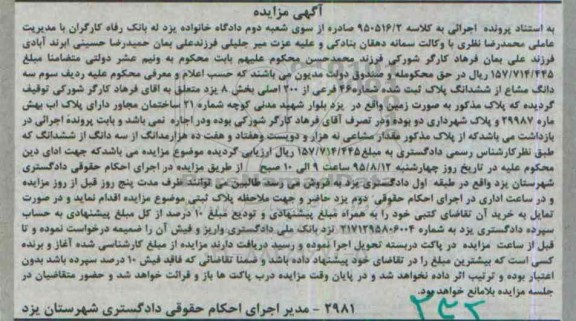 آگهی مزایده
به استناد پرونده اجرائی به کلاسه ۹۵۰۵۱۶/۲ صادره از سوی شعبه دوم دادگاه خانواده یزد له بانک رفاه کارگران با مدیریت
عاملی محمدرضا نظری با وکالت سمانه دهقان بنادکی و علیه عزت میر جلیلی فرزندعلی بمان حمیدرضا حسینی ابرند آبادی
فرزند علی بمان فرهاد کارگر شورکی فرزند محمدحسن محکوم علیهم بابت محکوم به ونیم عشر دولتی متضامنا مبلغ
۱۵۷/۷۱۴/۴۴۵ ریال در حق محکومله و صندوق دولت مدیون می باشند که حسب اعلام و معرفی محکوم علیه ردیف سوم سه
دانگ مشاع از ششدانگ پلاک ثبت شده شماره۴۶ فرعی از ۲۰۰ اصلی بخش ۸ یزد متعلق به اقای فرهاد کارگر شورکی توقیف
گردیده که پلاک مذکور به صورت زمین واقع در یزد بلوار شهید مدنی کوچه شماره ۲۱ ساختمان مجاور دارای پلاک اب بهش
ماره ۲۹۹۸۷ و پلاک شهرداری دو بوده ودر تصرف آقای فرهاد کارگر شورکی بوده ودر اجاره نمی باشد و بابت پرونده اجرائی در
بازداشت می باشدکه از پلاک مذکور مقدار مشاعی نه هزار و دویست وهفتاد و هفت ده هزارمدانگ از سه دانگ از ششدانگ که
طبق نظرکارشناس رسمی دادگستری به مبلغ۱۵۷/۷۱۴/۴۴۵ ریال ارزیابی گردیده موضوع مزایده می باشدکه جهت ادای دین
محکوم علیه در تاریخ روز چهارشنبه ۹۵/۸/۱۲ ساعت ۹ الی ۱۰ صبح از طریق مزایده در اجرای احکام حقوقی دادگستری
شهرستان یزد واقع در طبقه اول دادگستری یزد به فروش می رسد طالبین می توانند ظرف مدت پنج روز قبل از روز مزایده
و در ساعت اداری در اجرای احکام حقوقی دوم یزد حاضر و جهت ملاحظه پلاک ثبتی موضوع مزایده اقدام نماید و در صورت
تمایل به خرید آن تقاضای کتبی خود را به همراه مبلغ پیشنهادی و تودیع مبلغ ۱۰ درصد از کل مبلغ پیشنهادی به حساب
سپرده دادگستری یزد به شماره ۲۱۷۱۲۹۵۸۰۶۰۰۴ نزد بانک ملی دادگستری واریز و فیش آن را ضمیمه درخواست نموده و تا
قبل از ساعت مزایده در پاکت دربسته تحویل اجرا نموده و رسید دریافت دارند مزایده از مبلغ کارشناسی شده آغاز و برنده
کسی است که بیشترین مبلغ را در تقاضای خود پیشنهاد داده باشد و ضمنا تقاضائی که فاقد فیش ۱۰ درصد سپرده باشد بدون
اعتبار بوده و ترتیب اثر داده نخواهد شد و در پایان وقت مزایده درب پاکت ها باز و قرائت خواهد شد و حضور متقاضیان در
جلسه مزایده بلامانع خواهد بود.
۲۹۸۱ - مدیر اجرای احکام حقوقی دادگستری شهرستان یزد